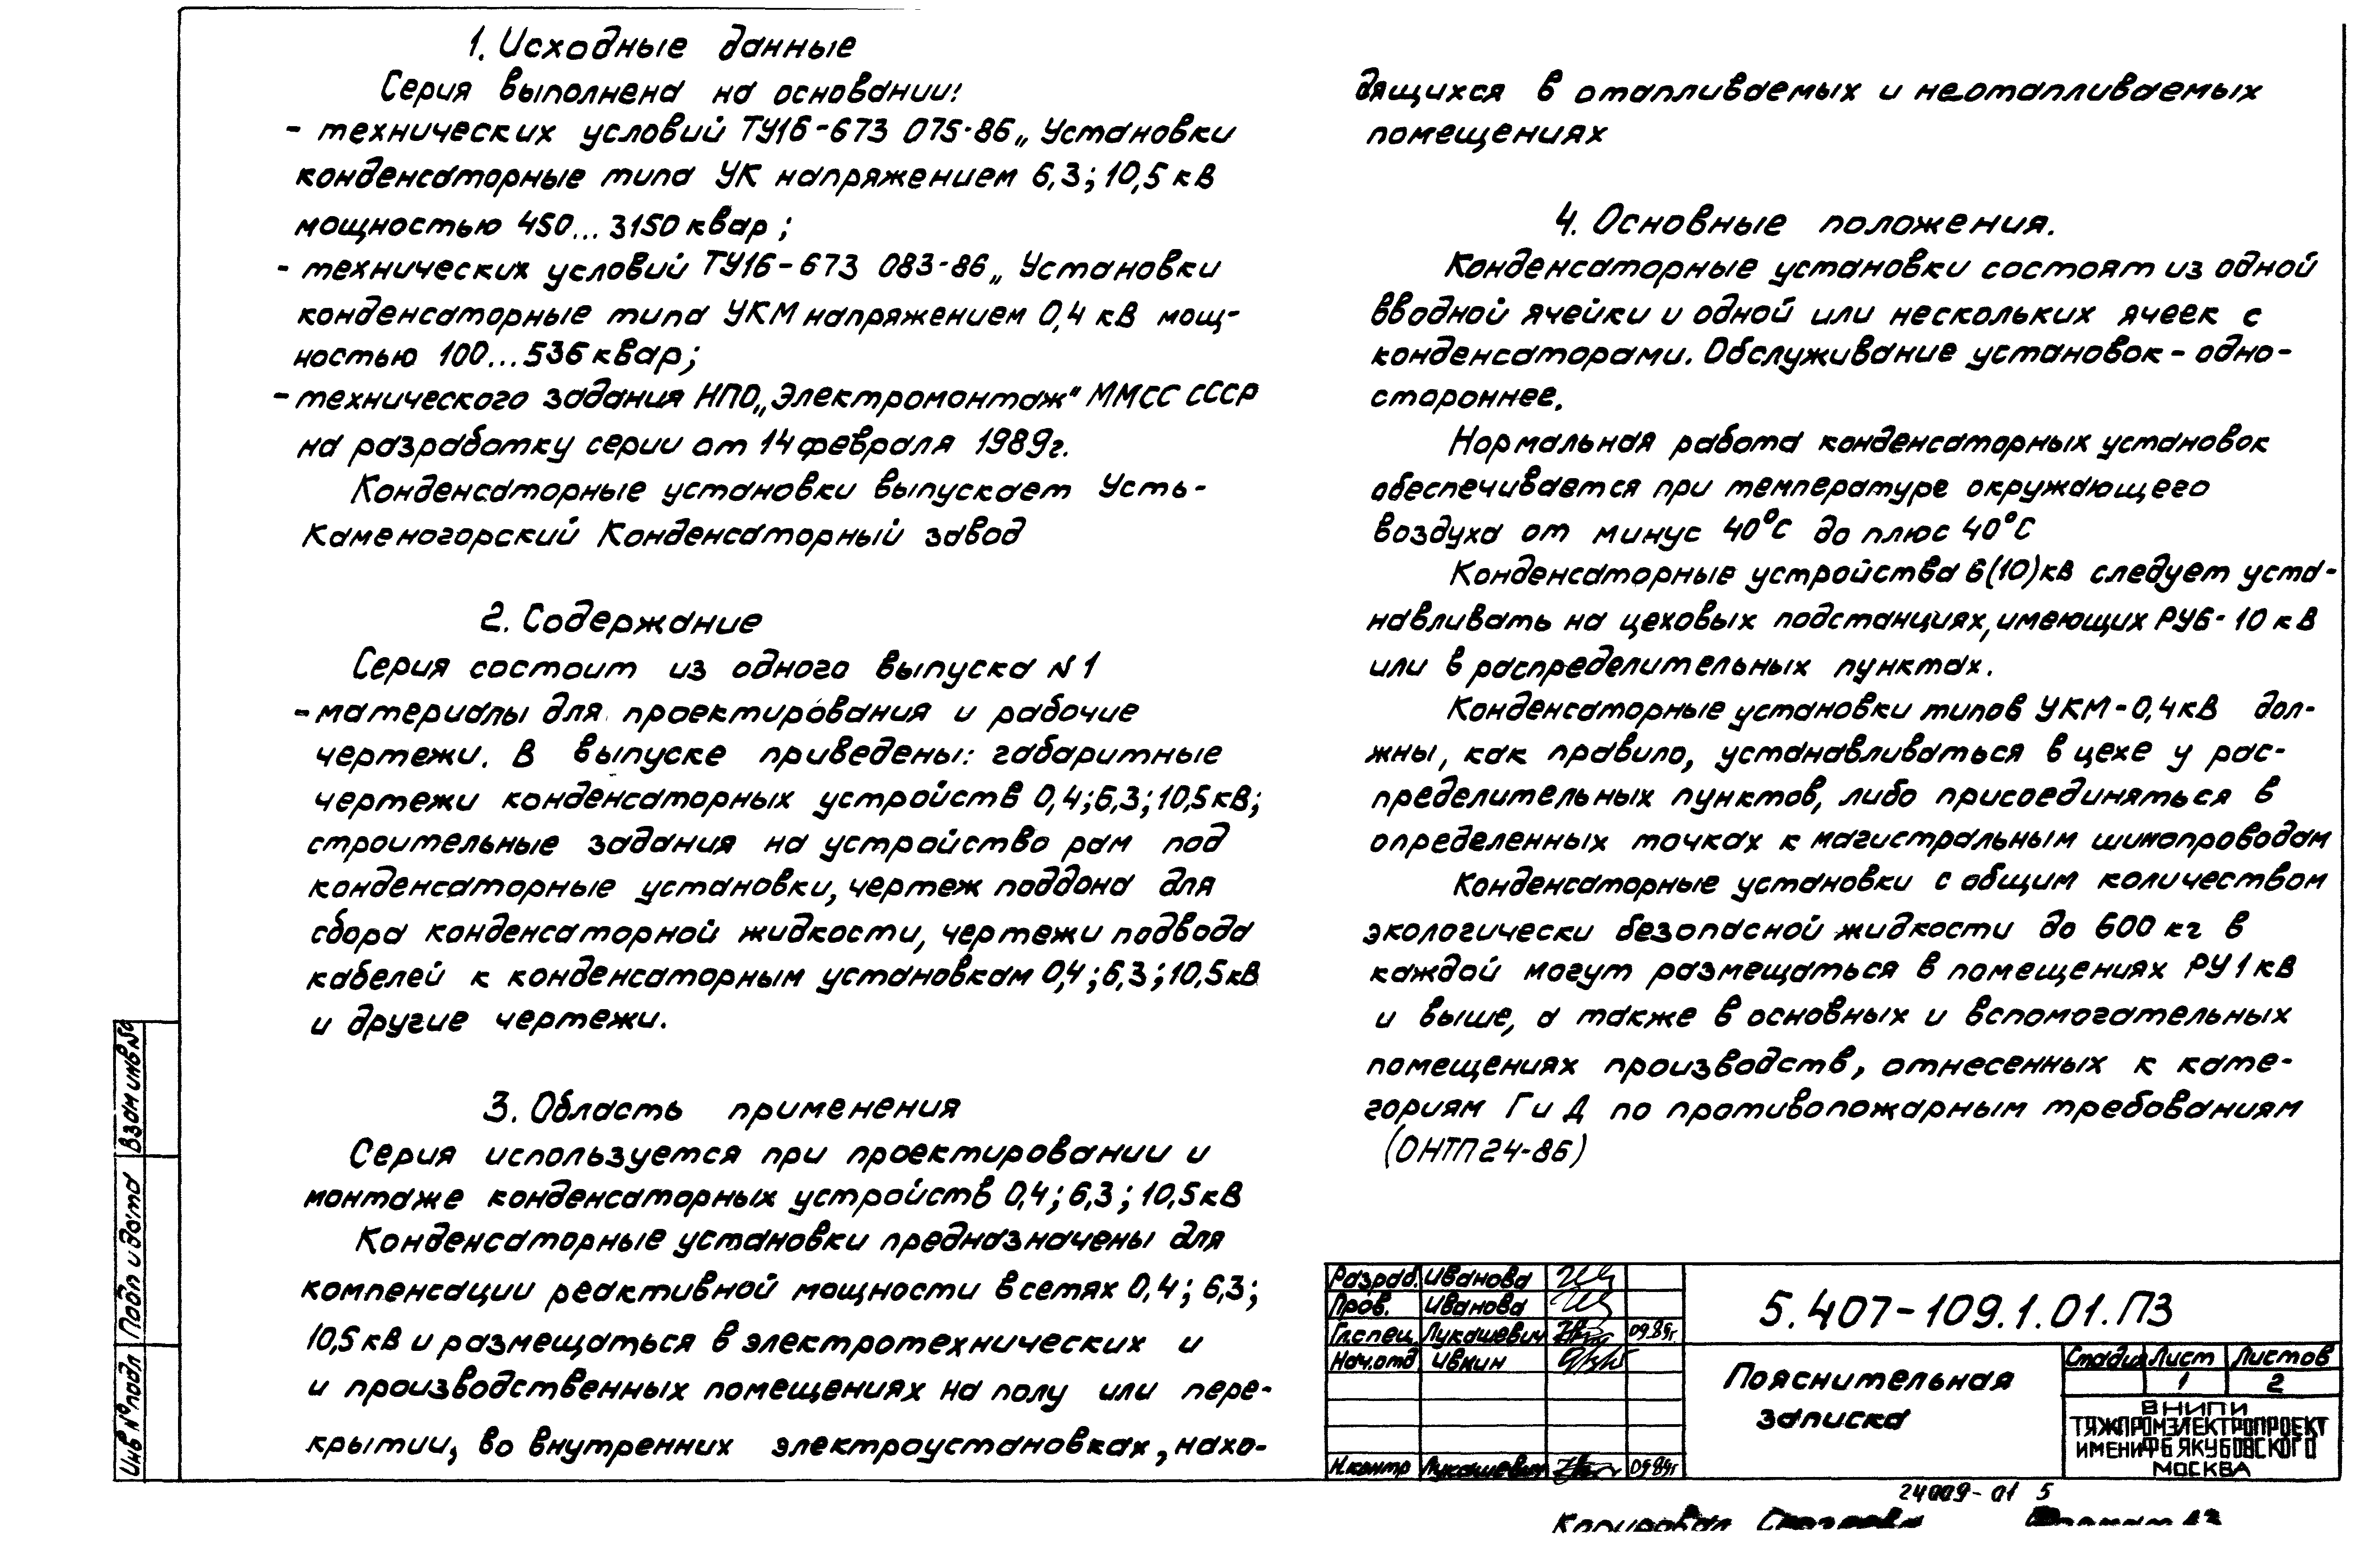 1. Исходные данные
Серия выполнена на основании:
- технических условий ТУ16-673 075-86 „Установки
конденсаторные типа УК напряжением 6,3; 10,5 кВ
мощностью 450...3150 квар;
- технических условий ТУ16-673 083-86 „Установки
конденсаторные типа УКМ напряжением 0,4 кВ мощ-
ностью 100...536 квар;
- технического задания НПО „Электромонтаж" ММСС СССР
на разработку серии от 14 февраля 1989г.
Конденсаторные установки выпускает Усть-
Каменогорский Конденсаторный завод
2. Содержание
Серия состоит из одного выпуска N1
- материалы для проектирования и рабочие
чертежи. В выпуске приведены: габаритные
чертежи конденсаторных устройств 0,4; 6,3; 10,5 кВ;
строительные задания на устройство рам под
конденсаторные установки, чертеж поддона для
сбора конденсаторной жидкости, чертежи подвода
кабелей к конденсаторным установкам 0,4; 6,3; 10,5 кВ
и другие чертежи.
3. Область применения
Серия используется при проектировании и
монтаже конденсаторных устройств 0,4; 6,3; 10,5 кВ
Конденсаторные установки предназначены для
компенсации реактивной мощности в сетях 0,4; 6,3;
10,5 кВ и размещаться в электротехнических и
и производственных помещениях на полу или пере-
крытии, во внутренних электроустановках, нахо-
дящихся в отапливаемых и неотапливаемых
помещениях
4. Основные положения.
Конденсаторные установки состоят из одной
вводной ячейки и одной или нескольких ячеек с
конденсаторами. Обслуживание установок - одно-
стороннее.
Нормальная работа конденсаторных установок
обеспечивается при температуре окружающего
воздуха от минус 40°С до плюс 40°С
Конденсаторные устройства 6(10)кВ следует уста-
навливать на цеховых подстанциях, имеющих РУ6-10 кВ
или в распределительных пунктах.
Конденсаторные установки типов УКМ-0,4кВ дол-
жны, как правило, устанавливаться в цехе у рас-
пределительных пунктов, либо присоединяться в
определенных точках к магистральным шинопроводам
Конденсаторные установки с общим количеством
экологически безопасной жидкости до 600 кг в
каждой могут размещаться в помещениях РУ 1 кВ
и выше, а также в основных и вспомогательных
помещениях производств, отнесенных к кате-
гориям Г и Д по противопожарным требованиям
(ОНТП 24-86)
Разраб. Иванова
Пров. Иванова
Гл.спец Лукашевич 09.89г
Нач.отд Ивкин
Н.контр Лукашевич 09.89г
5.407-109.1.01.ПЗ
Пояснительная
записка
Стадия Лист Листов
1 2
ВНИПИ
ТЯЖПРОМЭЛЕКТРОПРОЕКТ
ИМЕНИ Ф Б ЯКУБОВСКОГО
МОСКВА
24009-01 5
Копировал
Инв № подл
Подп и дата
Взам инв №